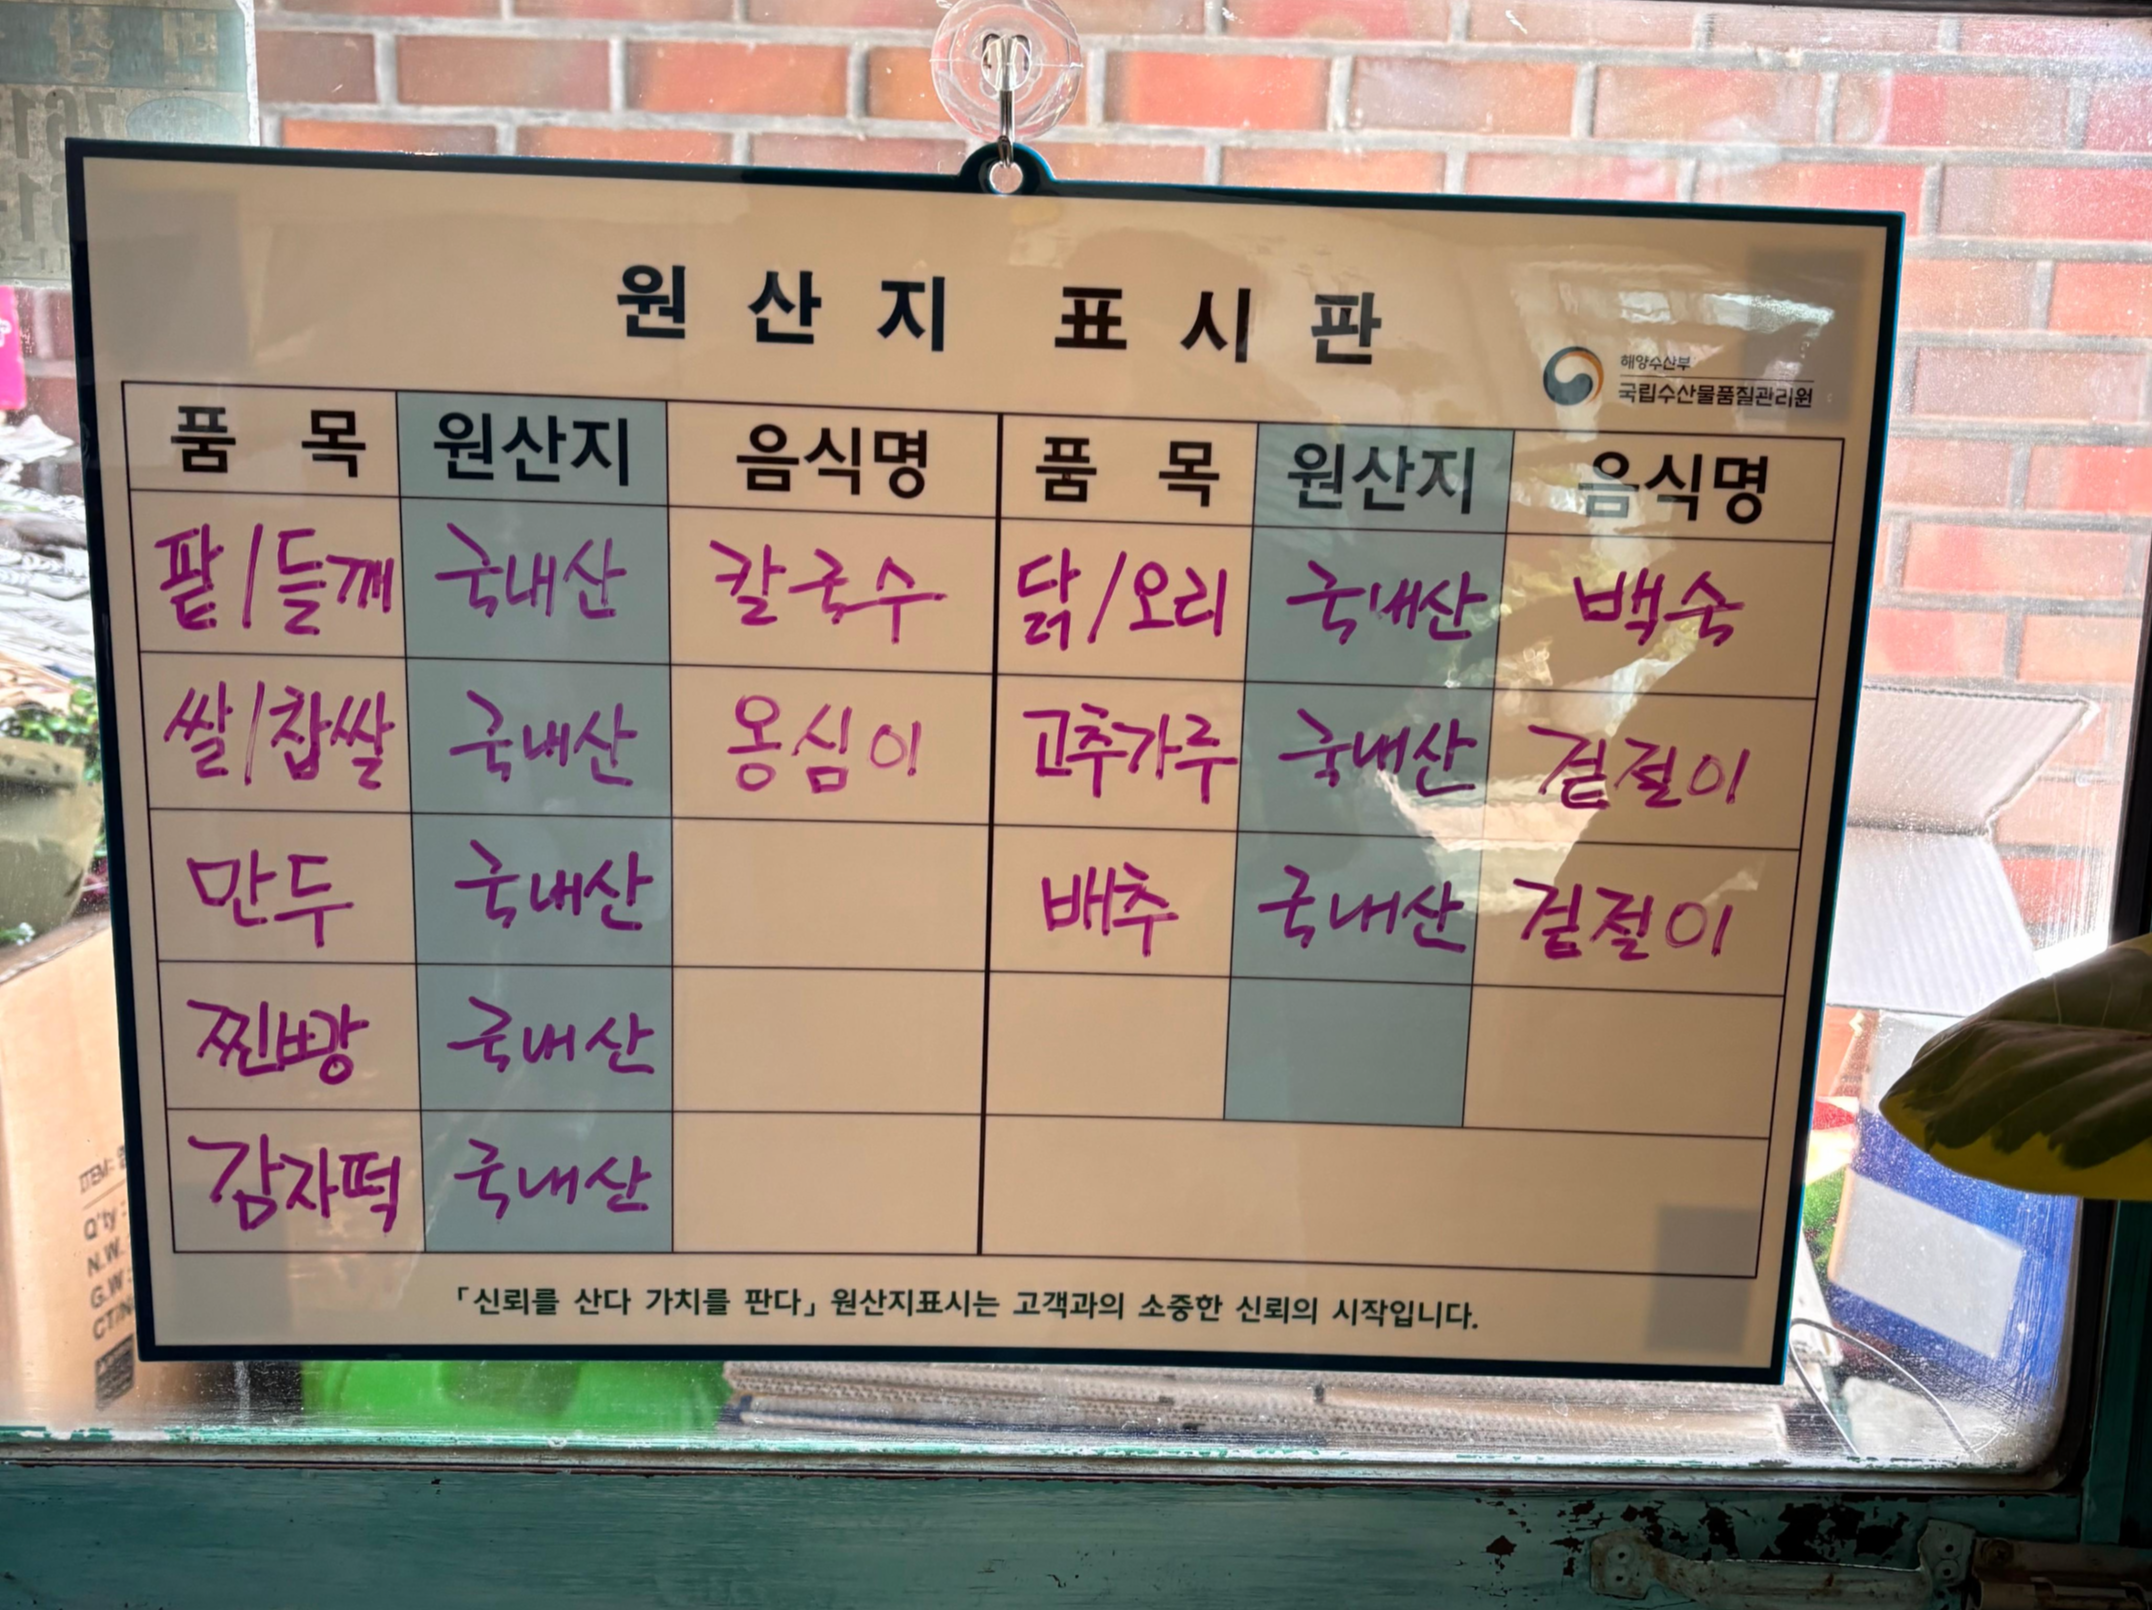 원산지 표시판
해양수산부
국립수산물품질관리원
품목 원산지 음식명 품목 원산지 음식명
팥/들깨 국내산 칼국수 닭/오리 국내산 백숙
쌀/찹쌀 국내산 옹심이 고추가루 국내산 겉절이
만두 국내산 배추 국내산 겉절이
찐빵 국내산
감자떡 국내산
「신뢰를 산다 가치를 판다」 원산지표시는 고객과의 소중한 신뢰의 시작입니다.
ITEM:
Q'ty :
N.W.
G.W